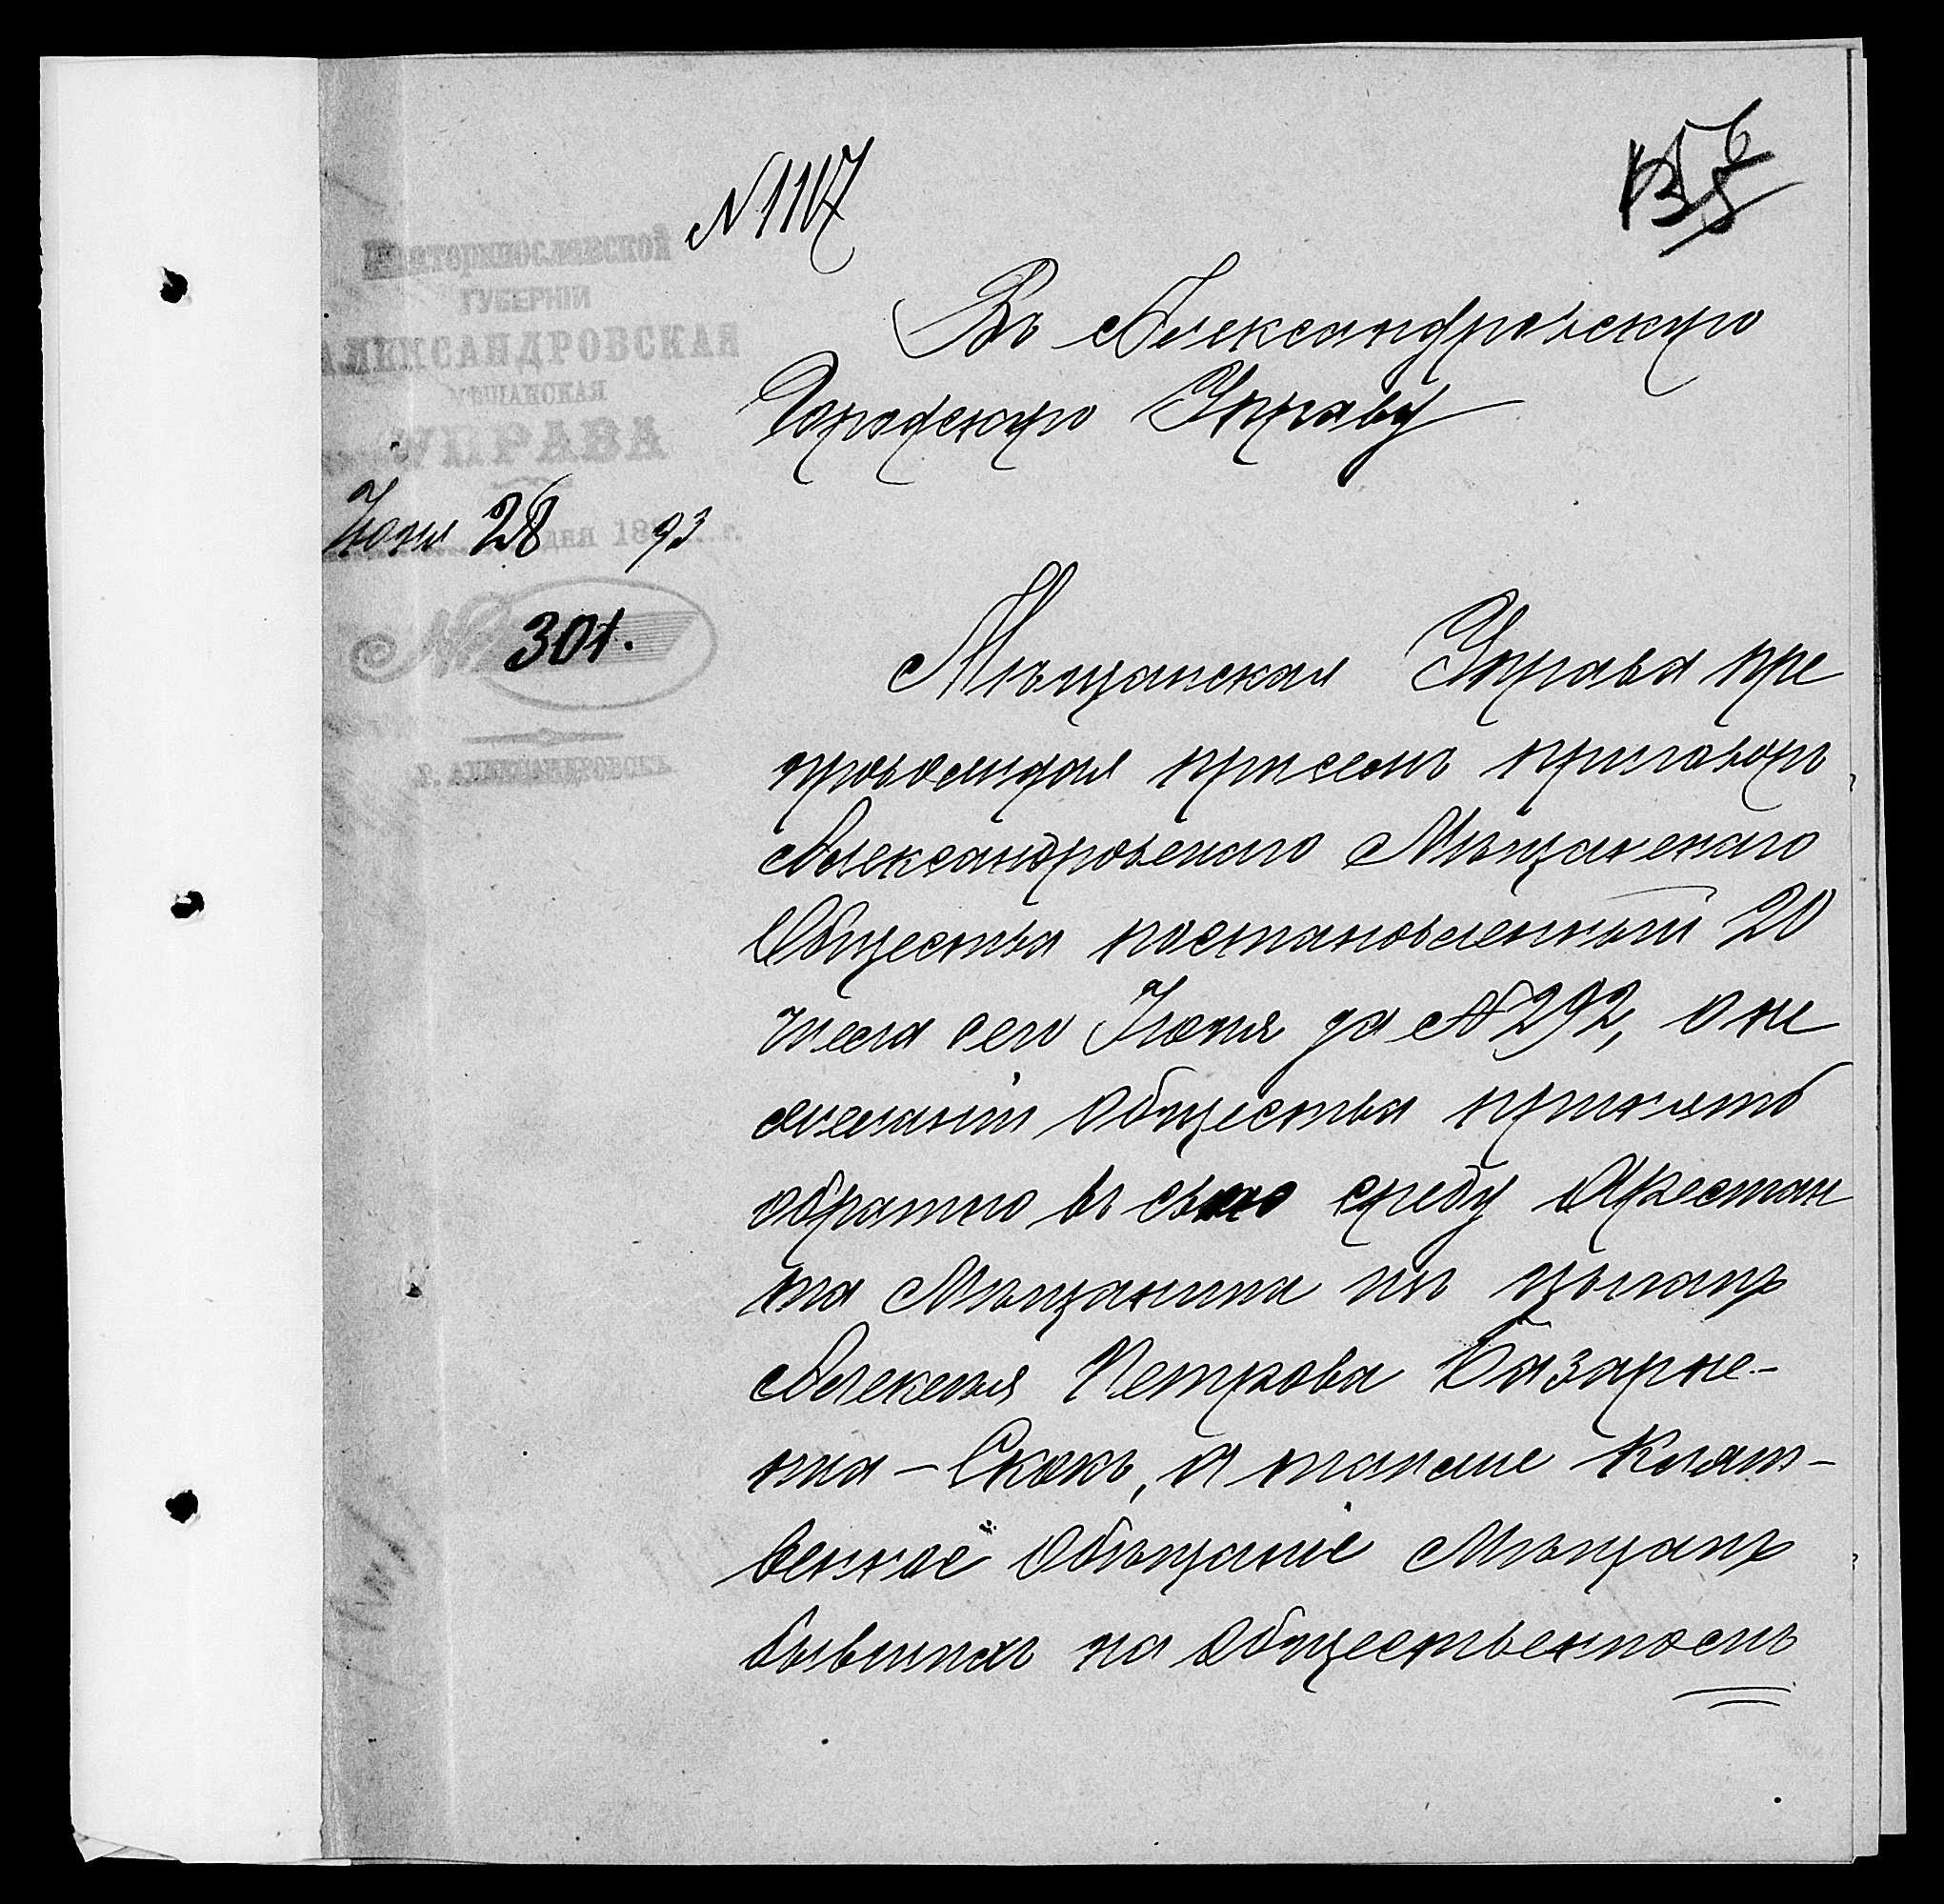 № 1117
156
Екатеринославской
ГУБЕРНІИ
АЛЕКСАНДРОВСКАЯ
МѢЩАНСКАЯ
УПРАВА
Іюня 28 дня 1893 г.
№ 301.
Г. АЛЕКСАНДРОВСКЪ
Въ Александровскую
Городскую Управу
Мѣщанская Управа пре
провождая присемъ приговоръ
Александровскаго Мѣщанскаго
Общества постановленный 20
числа сего Іюня за № 292, о не
желаніи Общества принять
обратно въ свою среду Арестан
та Мѣщанина изъ цыганъ
Алексѣя Петрова Базарне-
нка - Скокъ, а также Клят-
венное обѣщаніе Мѣщанъ
бывшихъ на общественномъ